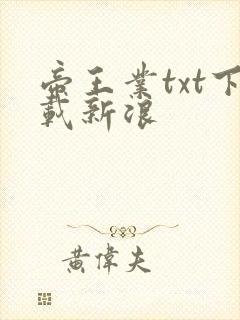 帝王业txt下
载新浪
黄偉夫